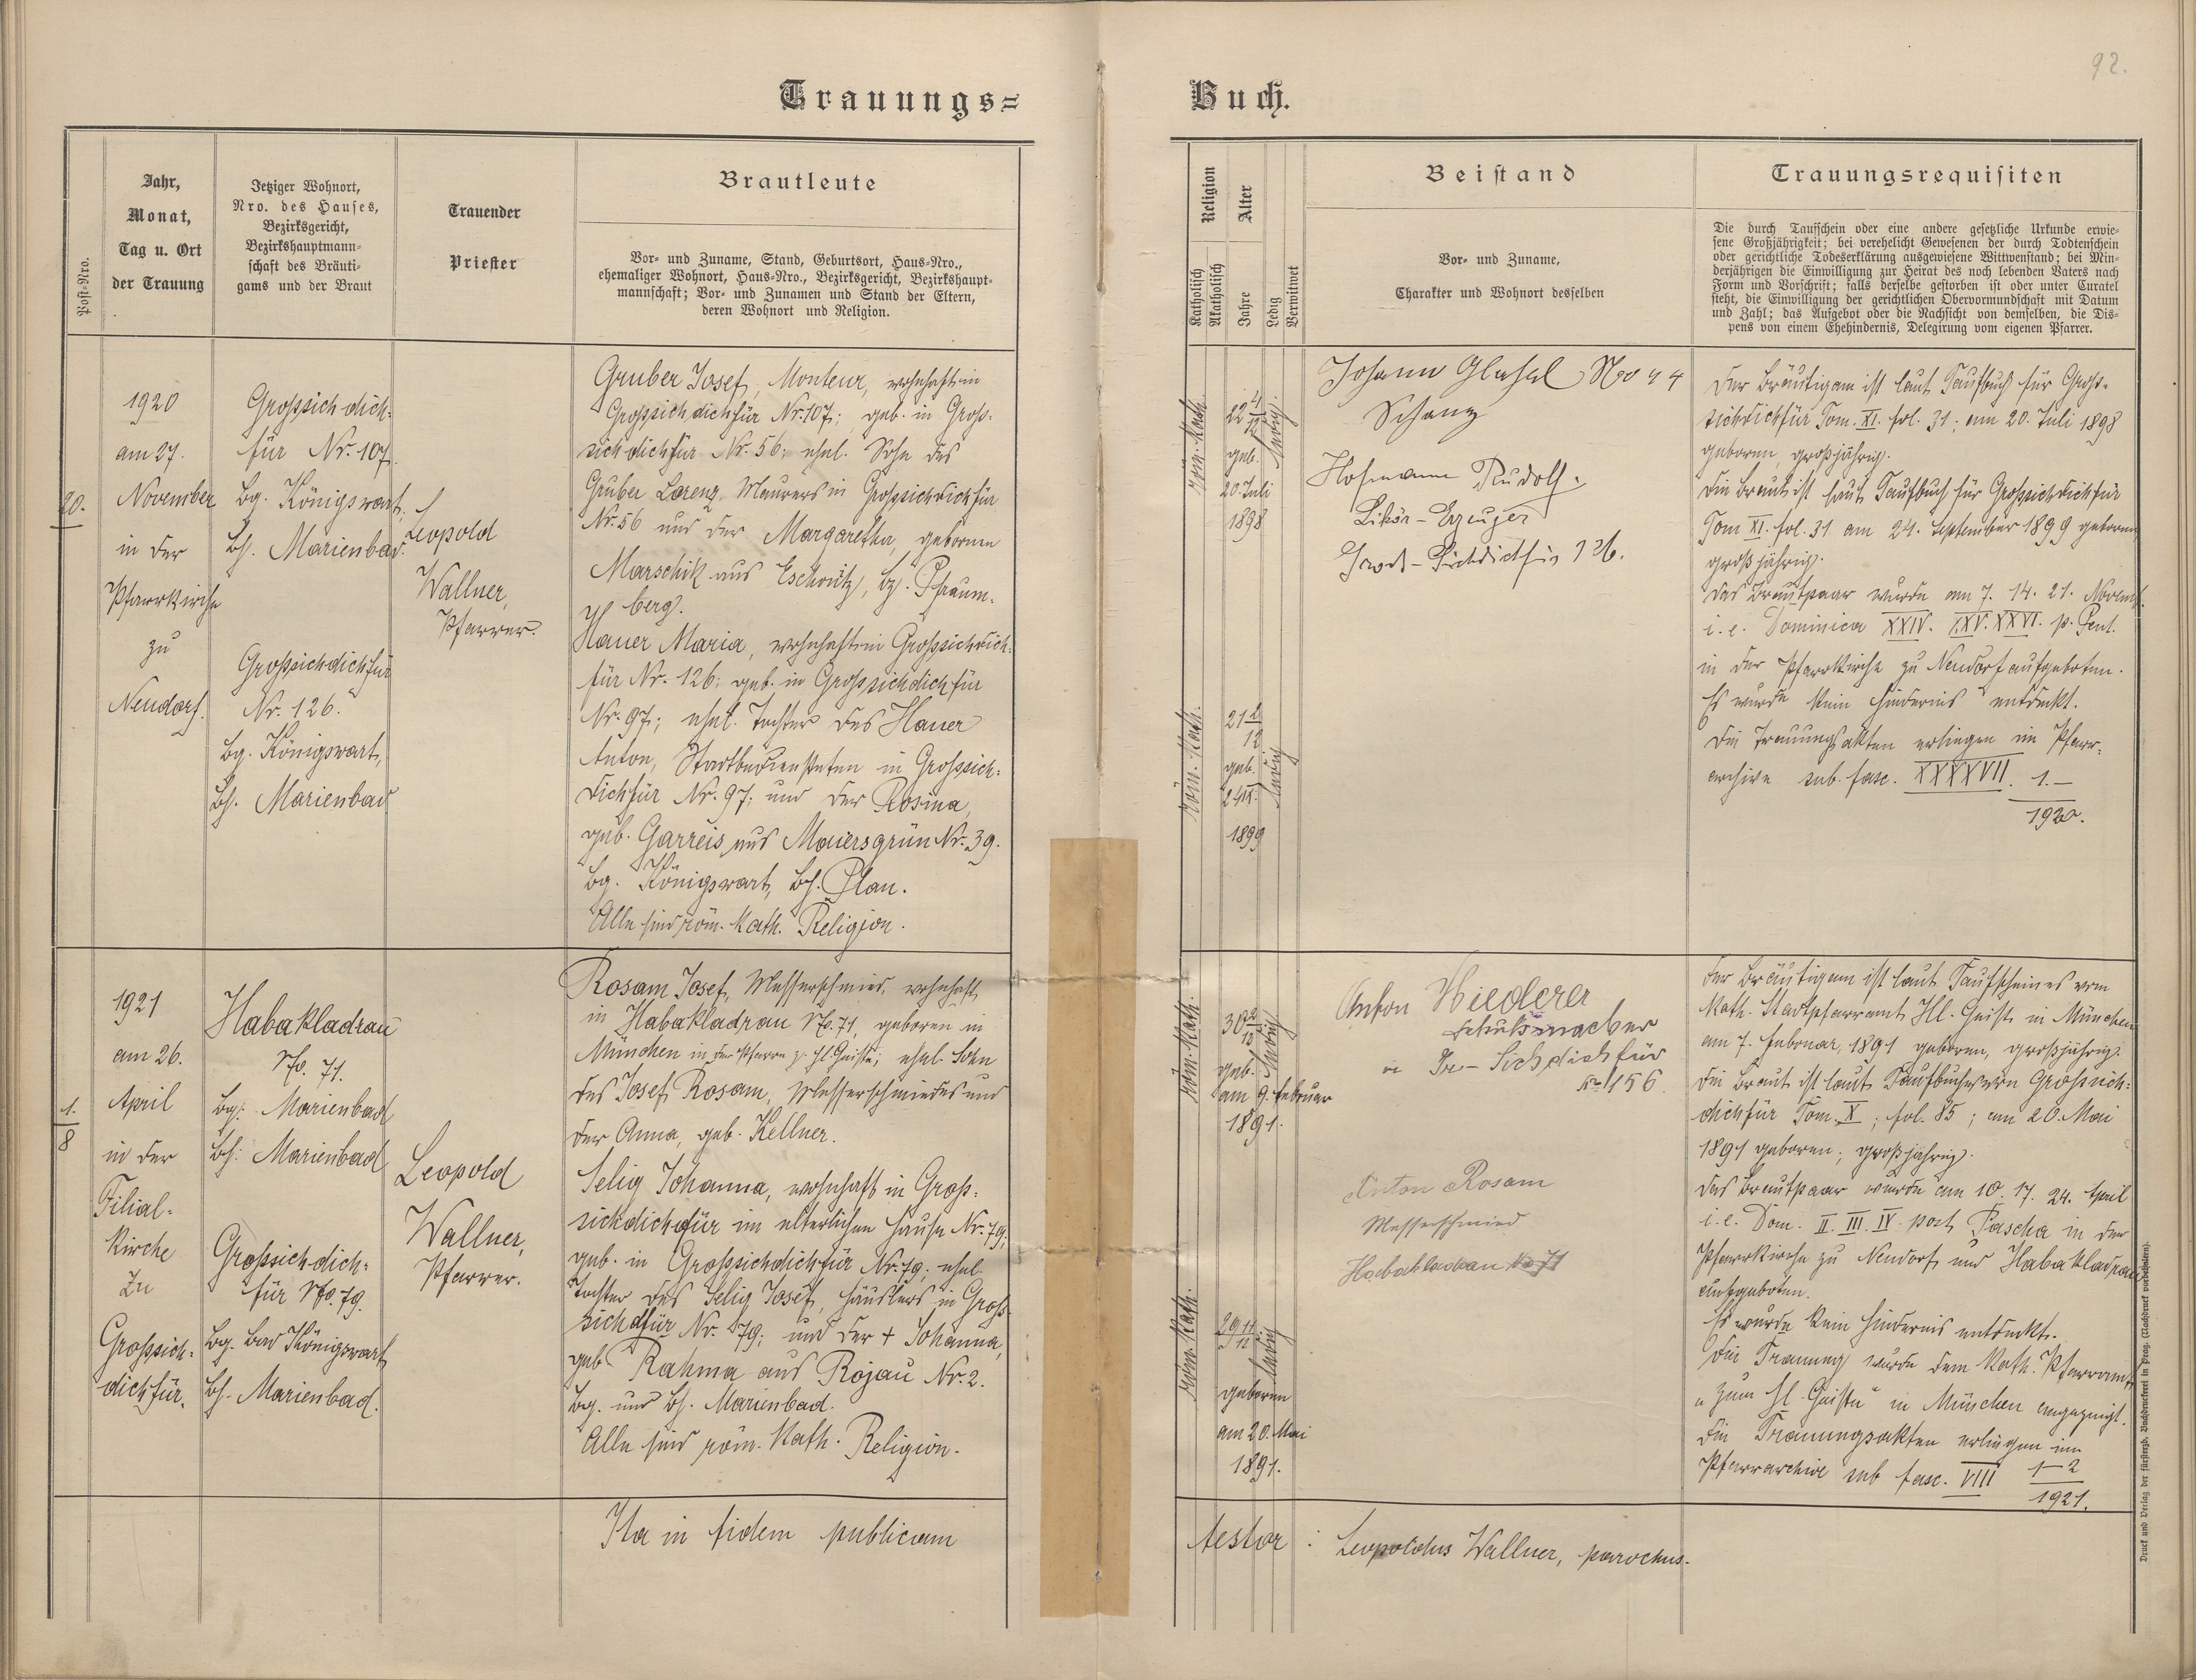 92.
Trauungs=
Buch.
Post-Nro.
Jahr,
Monat,
Tag u. Ort
der Trauung
Jetziger Wohnort,
Nro. des Hauses,
Bezirksgericht,
Bezirkshauptmann=
schaft des Bräuti=
gams und der Braut
Trauender
Priester
Brautleute
Vor= und Zuname, Stand, Geburtsort, Haus=Nro.,
ehemaliger Wohnort, Haus=Nro., Bezirksgericht, Bezirkshaupt=
mannschaft; Vor= und Zunamen und Stand der Eltern,
deren Wohnort und Religion.
Religion
Katholisch
Akatholisch
Alter
Jahre
Ledig
Verwitwet
Beistand
Vor= und Zuname,
Charakter und Wohnort desselben
Trauungsrequisiten
Die durch Taufschein oder eine andere gesetzliche Urkunde erwie=
sene Großjährigkeit; bei verehelicht Gewesenen der durch Todtenschein
oder gerichtliche Todeserklärung ausgewiesene Wittwenstand; bei Min=
derjährigen die Einwilligung zur Heirat des noch lebenden Vaters nach
Form und Vorschrift; falls derselbe gestorben ist oder unter Curatel
steht, die Einwilligung der gerichtlichen Obervormundschaft mit Datum
und Zahl; das Aufgebot oder die Nachsicht von demselben, die Dis=
pens von einem Ehehindernis, Delegirung vom eigenen Pfarrer.
20.
1920
am 27.
November
in der
Pfarrkirche
zu
Neudorf.
Grossichdich=
für Nr. 107.
Bg. Königswart,
Bh. Marienbad.
Grossichdichfür
Nr. 126.
Bg. Königswart,
Bh. Marienbad
Leopold
Wallner,
Pfarrer.
Gruber Josef, Monteur, wohnhaft in
Grossichdichfür Nr. 107; geb. in Gross=
sichdichfür Nr. 56; ehel. Sohn des
Gruber Lorenz, Maurers in Grossichdichfür
Nr. 56 und der Margaretha, geborene
Marschik aus Eschowitz, bz. Pfraum=
berg.
Hauer Maria, wohnhaft in Grossichdich=
für Nr. 126; geb. in Grossichdichfür
Nr. 97; ehel. Tochter des Hauer
Anton, Stadtbediensteten in Grossich=
dichfür Nr. 97; und der Rosina,
geb. Garreis aus Maiersgrün Nr. 39.
Bg. Königswart, Bh. Plan.
Alle sind röm. kath. Religion.
Röm. Kath.
22 4/12
geb.
20 Juli
1898
ledig.
Röm. Kath.
21 2/12
geb.
24 IX.
1899
ledig
Johann Glasel No 44
Schanz
Hofmann Rudolf.
Likör-Erzeuger
Gross-Sichdichfür 126.
Der Bräutigam ist laut Taufbuch für Gross=
sichdichfür Tom. XI. fol. 31; am 20. Juli 1898
geboren, großjährig.
Die Braut ist laut Taufbuch für Grossichdichfür
Tom XI. fol. 31 am 24. September 1899 geboren
großjährig.
Das Brautpaar wurde am 7. 14. 21. Novemb.
i. e. Dominica XXIV. XXV. XXVI. p. Pent.
in der Pfarrkirche zu Neudorf aufgeboten.
Es wurde kein Hindernis entdeckt.
Die Trauungsakten erliegen im Pfarr=
archive sub. fasc. XXXXVII. 1.—
1920.
1.
8
1921
am 26.
April
in der
Filial=
kirche
zu
Grossich=
dichfür.
Habakladrau
No. 71.
Bg. Marienbad
Bh. Marienbad
Grossichdich=
für No. 79.
Bg. Bad Königswart
Bh. Marienbad.
Leopold
Wallner,
Pfarrer.
Rosam Josef, Messerschmied, wohnhaft
in Habakladrau No. 71, geboren in
München in der Pfarre z. hl. Geiste; ehel. Sohn
des Josef Rosam, Messerschmiedes und
der Anna, geb. Kellner.
Selig Johanna, wohnhaft in Gross=
sichdichfür im elterlichen Hause Nr. 79;
geb. in Grossichdichfür Nr. 79; ehel.
Tochter des Selig Josef, Häuslers in Gross=
sichdfür Nr. 79; und der + Johanna,
geb. Rahma aus Rojau Nr. 2.
Bg. und Bh. Marienbad.
Alle sind röm. kath. Religion.
Röm. Kath.
30 2/12
geb.
am 9. Februar
1891.
ledig
Röm. Kath.
29 11/12
geboren
am 20. Mai
1891.
ledig
Anton Hiederer
Schuhmacher
in Gr- Sichdichfür
No 156
Anton Rosam
Messerschmied
Habakladrau No 71
Der Bräutigam ist laut Taufscheines vom
kath. Stadtpfarramt Hl. Geist in München
am 7. Februar, 1891 geboren, großjährig.
Die Braut ist laut Taufbuches von Grossich=
dichfür Tom. X; fol. 85; am 20. Mai
1891 geboren; großjährig.
Das Brautpaar wurde am 10. 17. 24. April
i. e. Dom. II. III. IV. post Pascha in der
Pfarrkirche zu Neudorf und Habakladrau
aufgeboten.
Es wurde kein Hindernis entdeckt.
Die Trauung wurde dem kath. Pfarramt
„zum hl. Geiste" in München angezeigt.
Die Trauungsakten erliegen im
Pfarrarchive sub fasc. VIII 1–2
1921.
Ita in fidem publicam
testor : Leopoldus Wallner, parochus.
Druck und Verlag der fürsterzb. Buchdruckerei in Prag. (Nachdruck vorbehalten).